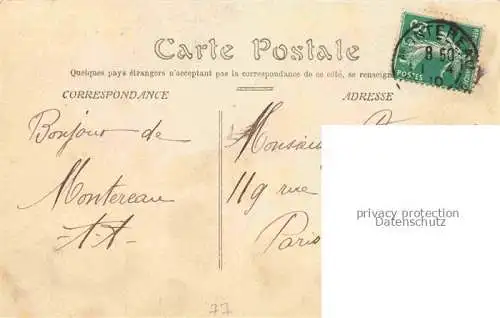 Carte Postale
Quelques pays étrangers n'acceptant pas la correspondance de ce côté, se renseigner
CORRESPONDANCE
ADRESSE
Bonjour de
Montereau
119 rue
Paris
privacy protection
Datenschutz
POSTES
8 50
77